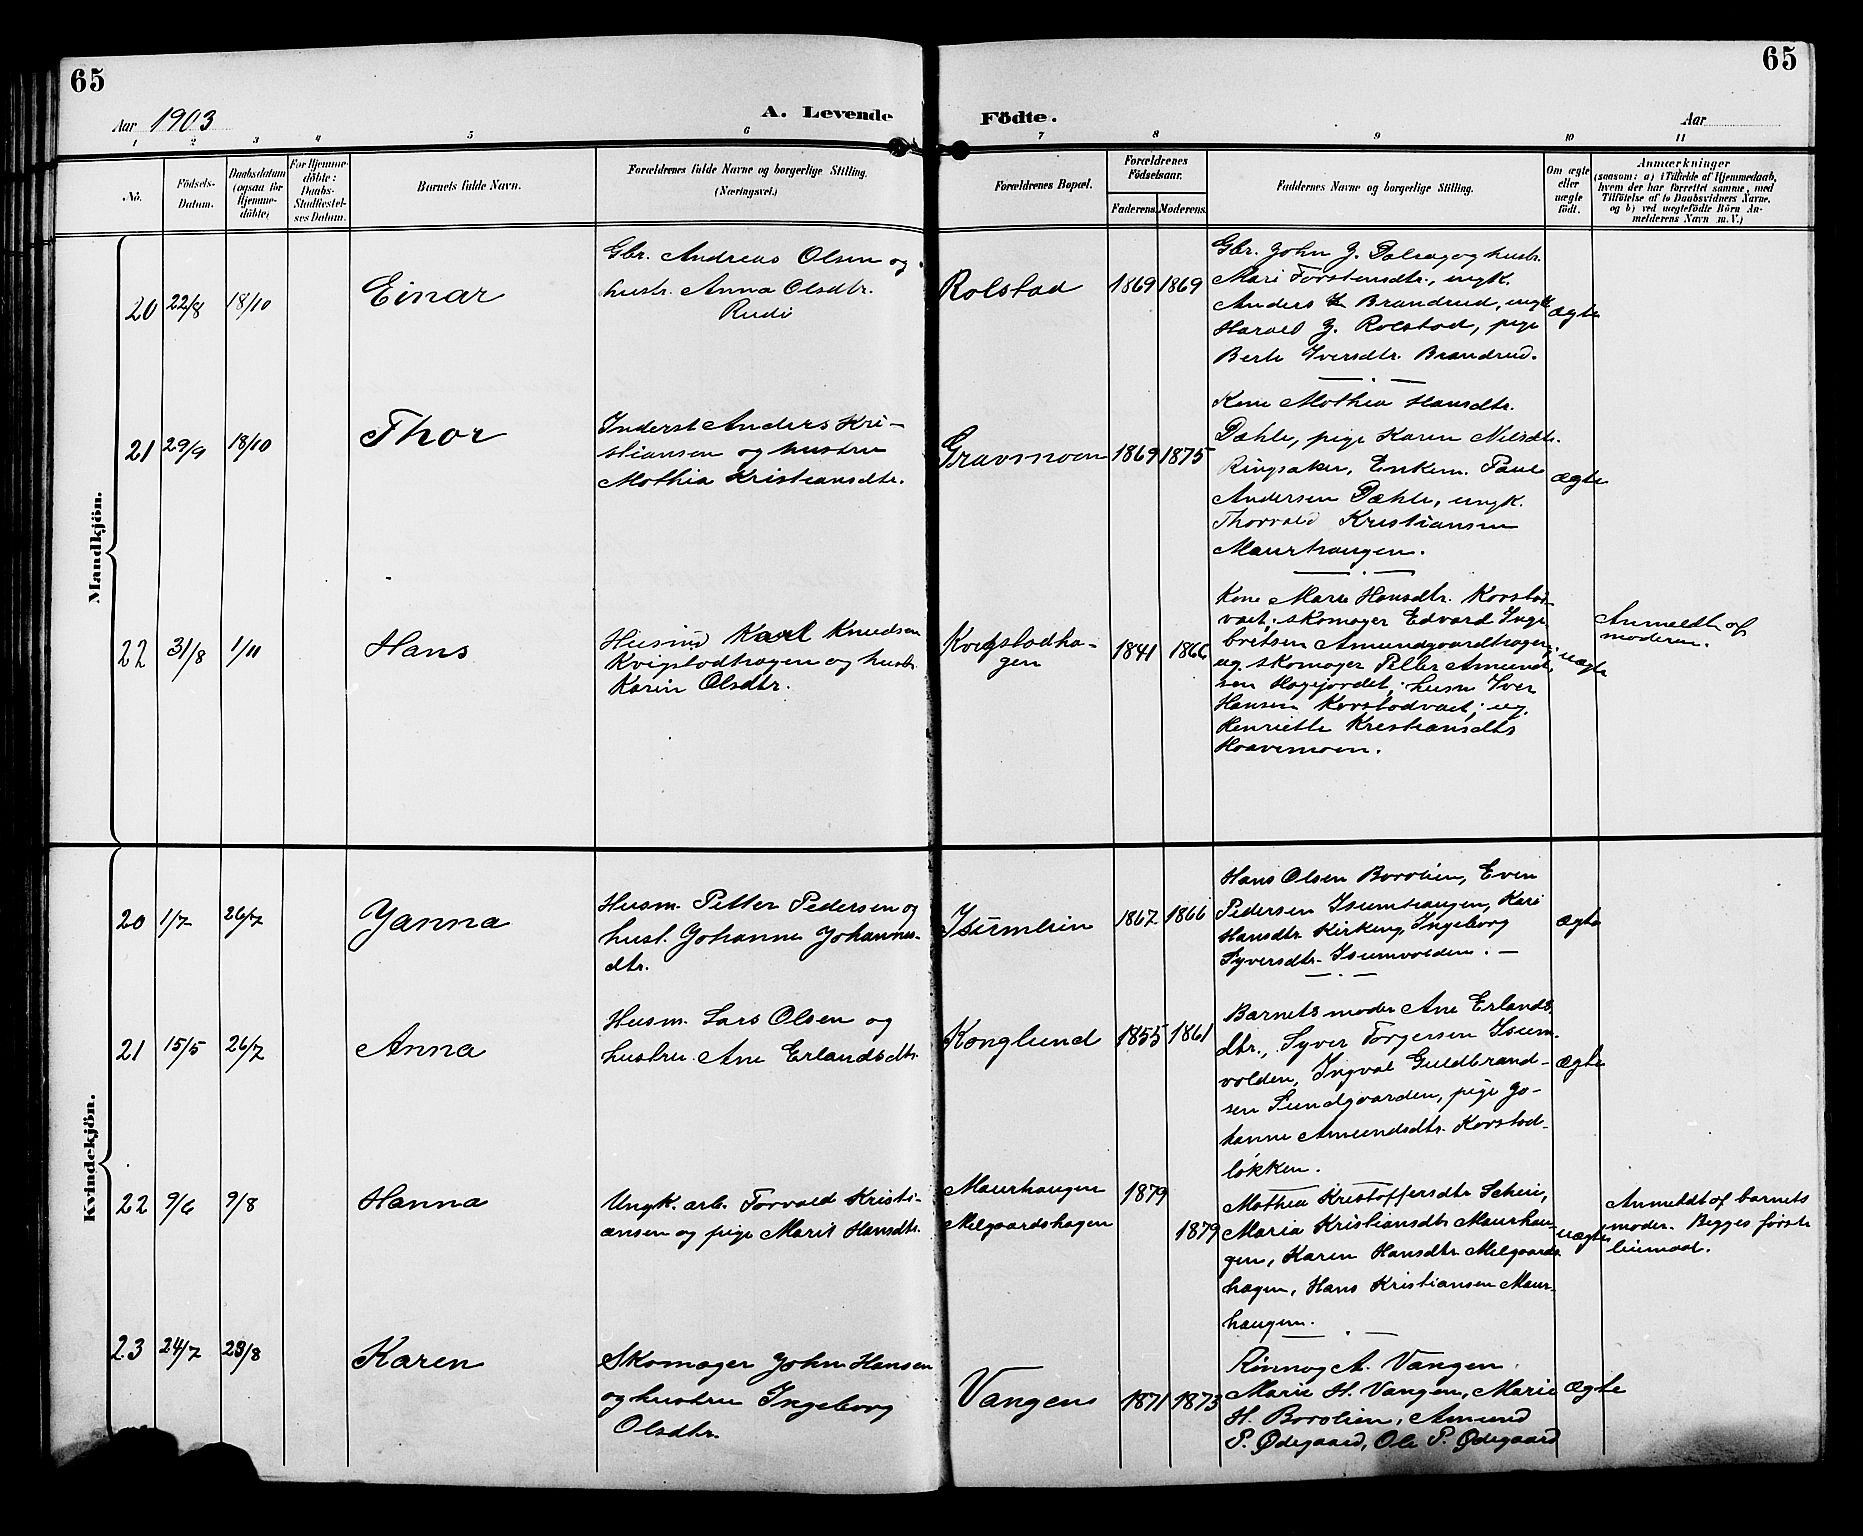 65
65
Aar 1903
A. Levende
Födte.
Aar
1 2 3 4 5 6 7 8 9 10 11
No.
Födsels-
Datum.
Daabsdatum
(ogsaa for
Hjemme-
döbte)
For Hjemme-
döbte:
Daabs-
Stadfæstel-
ses Datum.
Barnets fulde Navn.
Forældrenes fulde Navne og borgerlige Stilling.
(Næringsvei.)
Forældrenes Bopæl.
Forældrenes
Födselsaar.
Faderens. Moderens.
Faddernes Navne og borgerlige Stilling.
Om ægte
eller
uægte
födt.
Anmærkninger
(saasom: a) i Tilfælde af Hjemmedaab,
hvem der har forrettet samme, med
Tilföielse af to Daabsvidners Navne.
og b) ved uægtefödte Börn An-
melderens Navn m. V.)
Mandkjön.
20 22/8 18/10
Einar
Gbr. Andreas Olsen og
hustr. Anna Olsdtr.
Rudi
Rolstad
1869 1869
Gbr. John J. Dalseg og hustr.
Mari Torstensdtr., ungk.
Anders Brandrud, ungk.
Harald J. Rolstad, pige
Berte Iversdtr. Brandrud.
ægte
21 29/9 18/10
Thor
Inderst Anders Kri-
stiansen og hustru
Mathia Kristiansdtr.
Gravmoen
1869 1875
Kone Mathea Hansdtr.
Dæhle, pige Karen Nilsdtr.
Ringsaker, Enkem. Paul
Andersen Dæhle, ungk.
Thorvald Kristiansen
Maurhaugen.
ægte
22 31/8 1/11
Hans
Husmd Karl Knudsen
Kvigstadhagen og hustr.
Karin Olsdtr.
Kvigstadha-
gen
1841 1866
Kone Marie Hansdtr. Korstad-
vaet, skomager Edvard Inge-
britsen Amundgaardhagen;
ug. skomager Petter Amund-
sen Hagejordet; husm Iver
Hansen Korstadvaet; ug.
Henriette Kristiansdtr
Haavemoen.
uægte
Anmeldt af
moderen.
Kvindekjön.
20 1/7 26/7
Janna
Husm. Petter Pedersen og
hust. Johanne Johannes-
dtr.
Isumlien
1867 1866
Hans Olsen Borolien, Even
Pedersen Isumhaugen, Kari
Hansdtr Kirkeng, Ingeborg
Syversdtr. Isumvolden.
ægte
21 15/5 26/7
Anna
Husm. Lars Olsen og
hustru Ane Erlandsdtr.
Konglund
1855 1861
Barnets moder Ane Erlands
dtr., Syver Torgersen Isum-
volden, Ingval Guldbrand-
sen Sundgaarden, pige Jo-
hanne Amundsdtr. Korstad-
løkken.
ægte
22 9/6 9/8
Hanna
Ungk. arb. Torvald Kristi-
ansen og pige Marit Hansdtr.
Maurhaugen
Melgaardshagen
1879
1879
Mathea Kristoffersdtr Scheie,
Maria Kristiansdtr Maurhau-
gen, Karen Hansdtr Melgaards-
hagen, Hans Kristiansen Maur-
haugen.
uægte
Anmeldt af barnets
moder. Begges første
leiermaal.
23 24/7 23/8
Karen
Skomager John Hansen
og hustru Ingeborg
Olsdtr.
Vangens
1871 1873
Rønnog A. Vangen
Marie H. Vangen, Marie
H. Borolien, Amund
P. Ødegaard, Ole P. Ødegaard
ægte